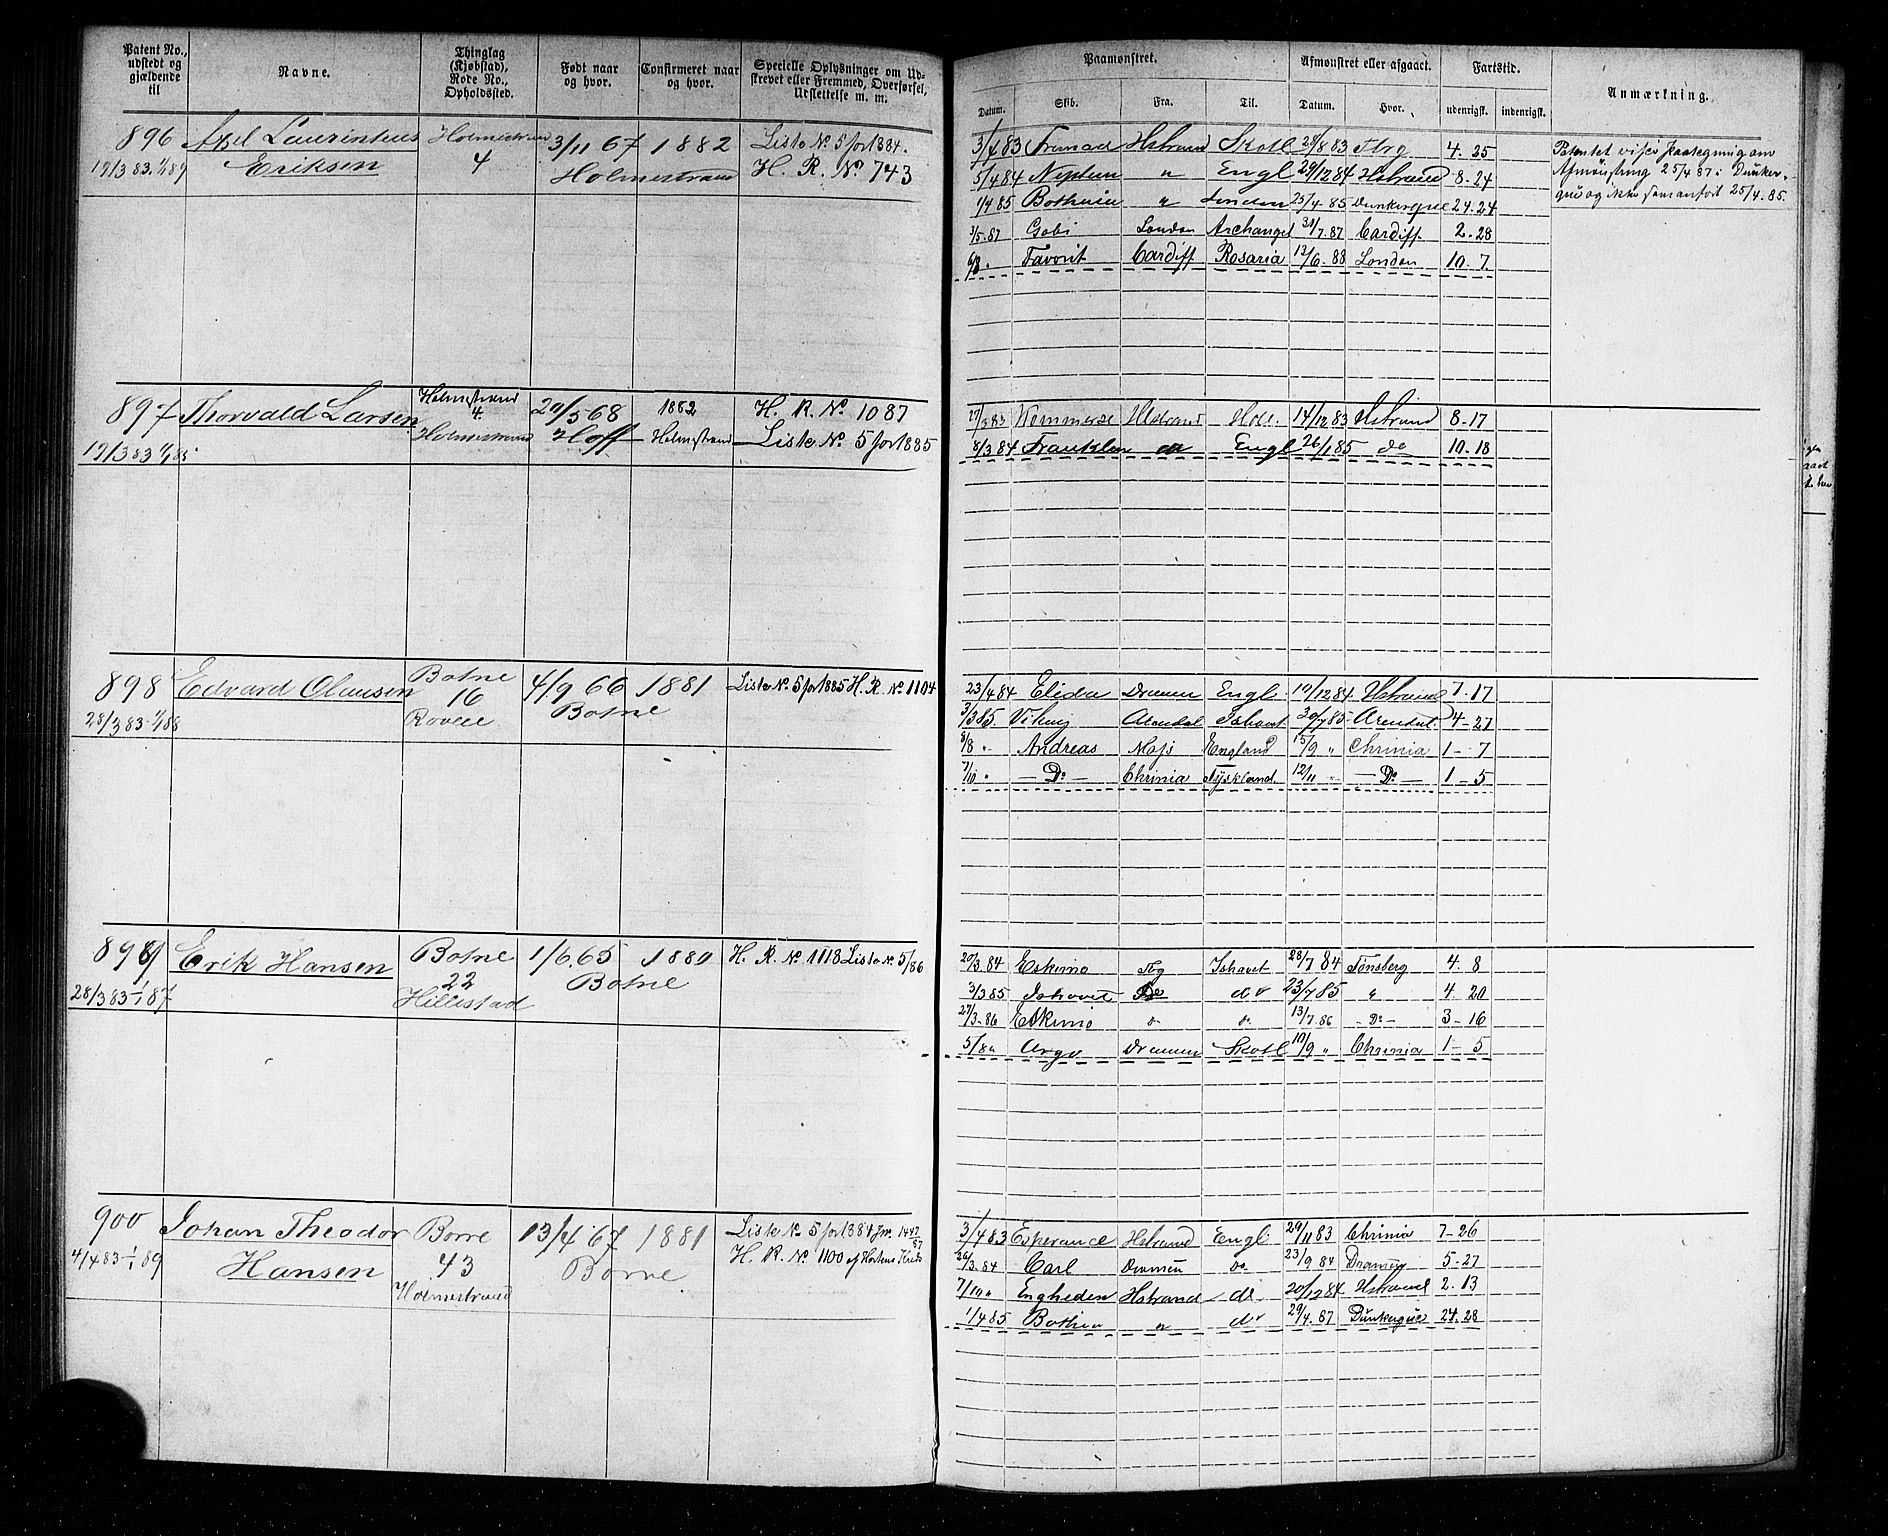 Patent No., udstedt og gjældende til
Navne.
Thinglag (Kjøbstad), Rode No., Opholdssted.
Født naar og hvor.
Confirmeret naar og hvor.
Specielle Oplysninger om Udskrevet eller Fremmed, Overførsel, Urslettelse m. m.
Paamønstret.
Afmønstret eller afgaaet.
Fartstid.
Anmærkning.
Datum. Skib. Fra. Til. Datum. Hvor. udenrigsk. indenrigsk.
896 Axel Laurintius Holmestrand 3/11 67 1882 Liste No. 5 for 1884.
19/3 83. 1/1 89 Eriksen 4 Holmestrand H. R. No. 743
3/4 83 Hstrand Skotl 28/8 83 Tbrg 4. 25
5/4 84 Neptun " Engl 29/12 84 Hstrand 8-24
1/4 85 Bothnia " London 25/4 85 Dunkerque 24. 24
3/5. 87 Gobi London Archangel 31/7. 87 Cardiff 2-28
6/8 " Favorit Cardiff Rosaria 13/6. 88 London 10-7
Patentet viser paategning om
Afmönstring 25/4 87 i Dunker-
que og ikke som anfört 25/4. 85.
897 Thorvald Larsen Holmestrand 4. 20/5 68 1882 H. R. No. 1087
19/3 83 1/1 85 Holmestrand Hoff Holmestrand Liste No. 5 for 1885
27/3 83 Kommerse Hstrand Holl. 14/12 83 Hstrand 8-17
8/3 84 Franklin do Engl 26/1 85 do 10-18
898 Edvard Olausen Botne 4/9 66 1881 Liste No. 5 for 1885 H. R. No. 1104
16 Botne
28/3 83-1/1 86
23/4 84 Elida Drammen Engl. 19/12 84. Hstrand 7-17
3/3 85. Viking Arendal Ishavet 30/7 85 Arendal 4-27
8/8 " Andreas Mojs England 15/9 " Chrinia 1-7
7/10 " - Do - Chrinia Tyskland. 12/11 " - Do - 1-5
899 Erik Hansen Botne 1/6. 65 1880 H. R. No. 1118 Liste No. 5/86
22 Botne
28/3 83-1/1 87 Hillestad
20/3. 84 Eskimo Tbg Ishavet 28/7 84 Tønsberg 4. 8
3/3 85 Ishavet Do do 23/7 85 " 4. 20
27/3. 86 Eskimo " " 13/7 86 - Do - 3-16
5/8 " Argo Drammen Skotl 10/9 " Chrinia 1-5
900 Johan Theodor Borre 13/4 67 1881 Liste No. 5 for 1884 Jnr. 1447/87
4/4 83-1/1 89 Hansen 43 Borre H. R. No. 1100 af Hortens Kreds
Holmestrand
3/4 83 Esperance Hstrand Engl. 29/11 83 Chrinia 7-26
26/3. 84 Carl Drammen do 23/9 84 Drammen 5-27
7/10 " Engheden Hstrand do 20/12 84 Hstrand 2. 13
1/4 85 Bothnia " do 29/4. 87 Dunkerque 24. 28